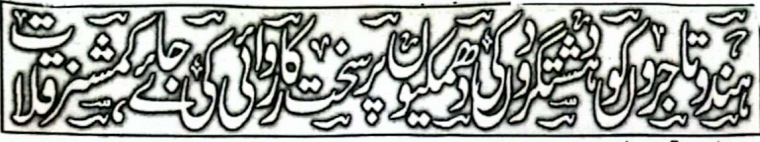 ہندو تاجروں کو دہشتگردوں کی دھمکیوں پر سخت کارروائی کی جائے، کمشنر قلات